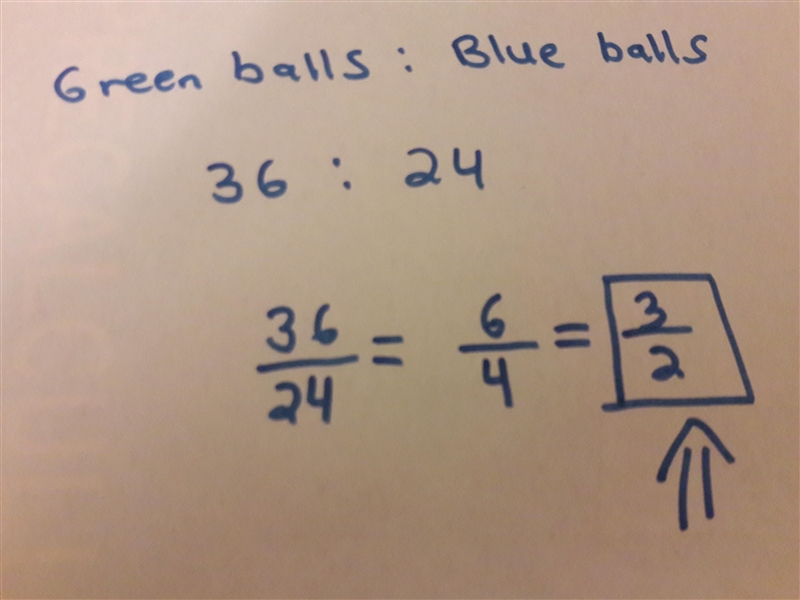 Green balls : Blue balls
36 : 24
36/24 = 6/4 = 3/2